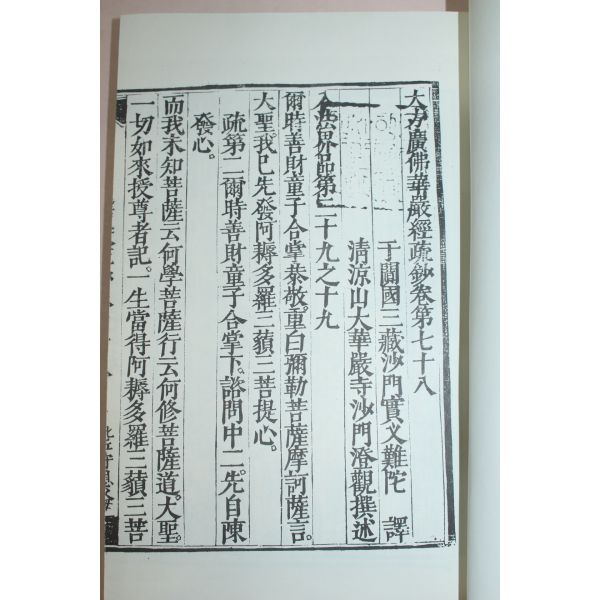 大方廣佛華嚴經疏鈔卷第七十八
于闐國三藏沙門實叉難陀 譯
清涼山大華嚴寺沙門澄觀撰述
入法界品第三十九之十九
爾時善財童子合掌恭敬。重白彌勒菩薩摩訶薩言。
大聖。我已先發阿耨多羅三藐三菩提心。
疏第二爾時善財童子合掌下。諮問中二。先自陳
發心。
而我未知菩薩云何學菩薩行。云何修菩薩道。大聖。
一切如來授尊者記。一生當得阿耨多羅三藐三菩